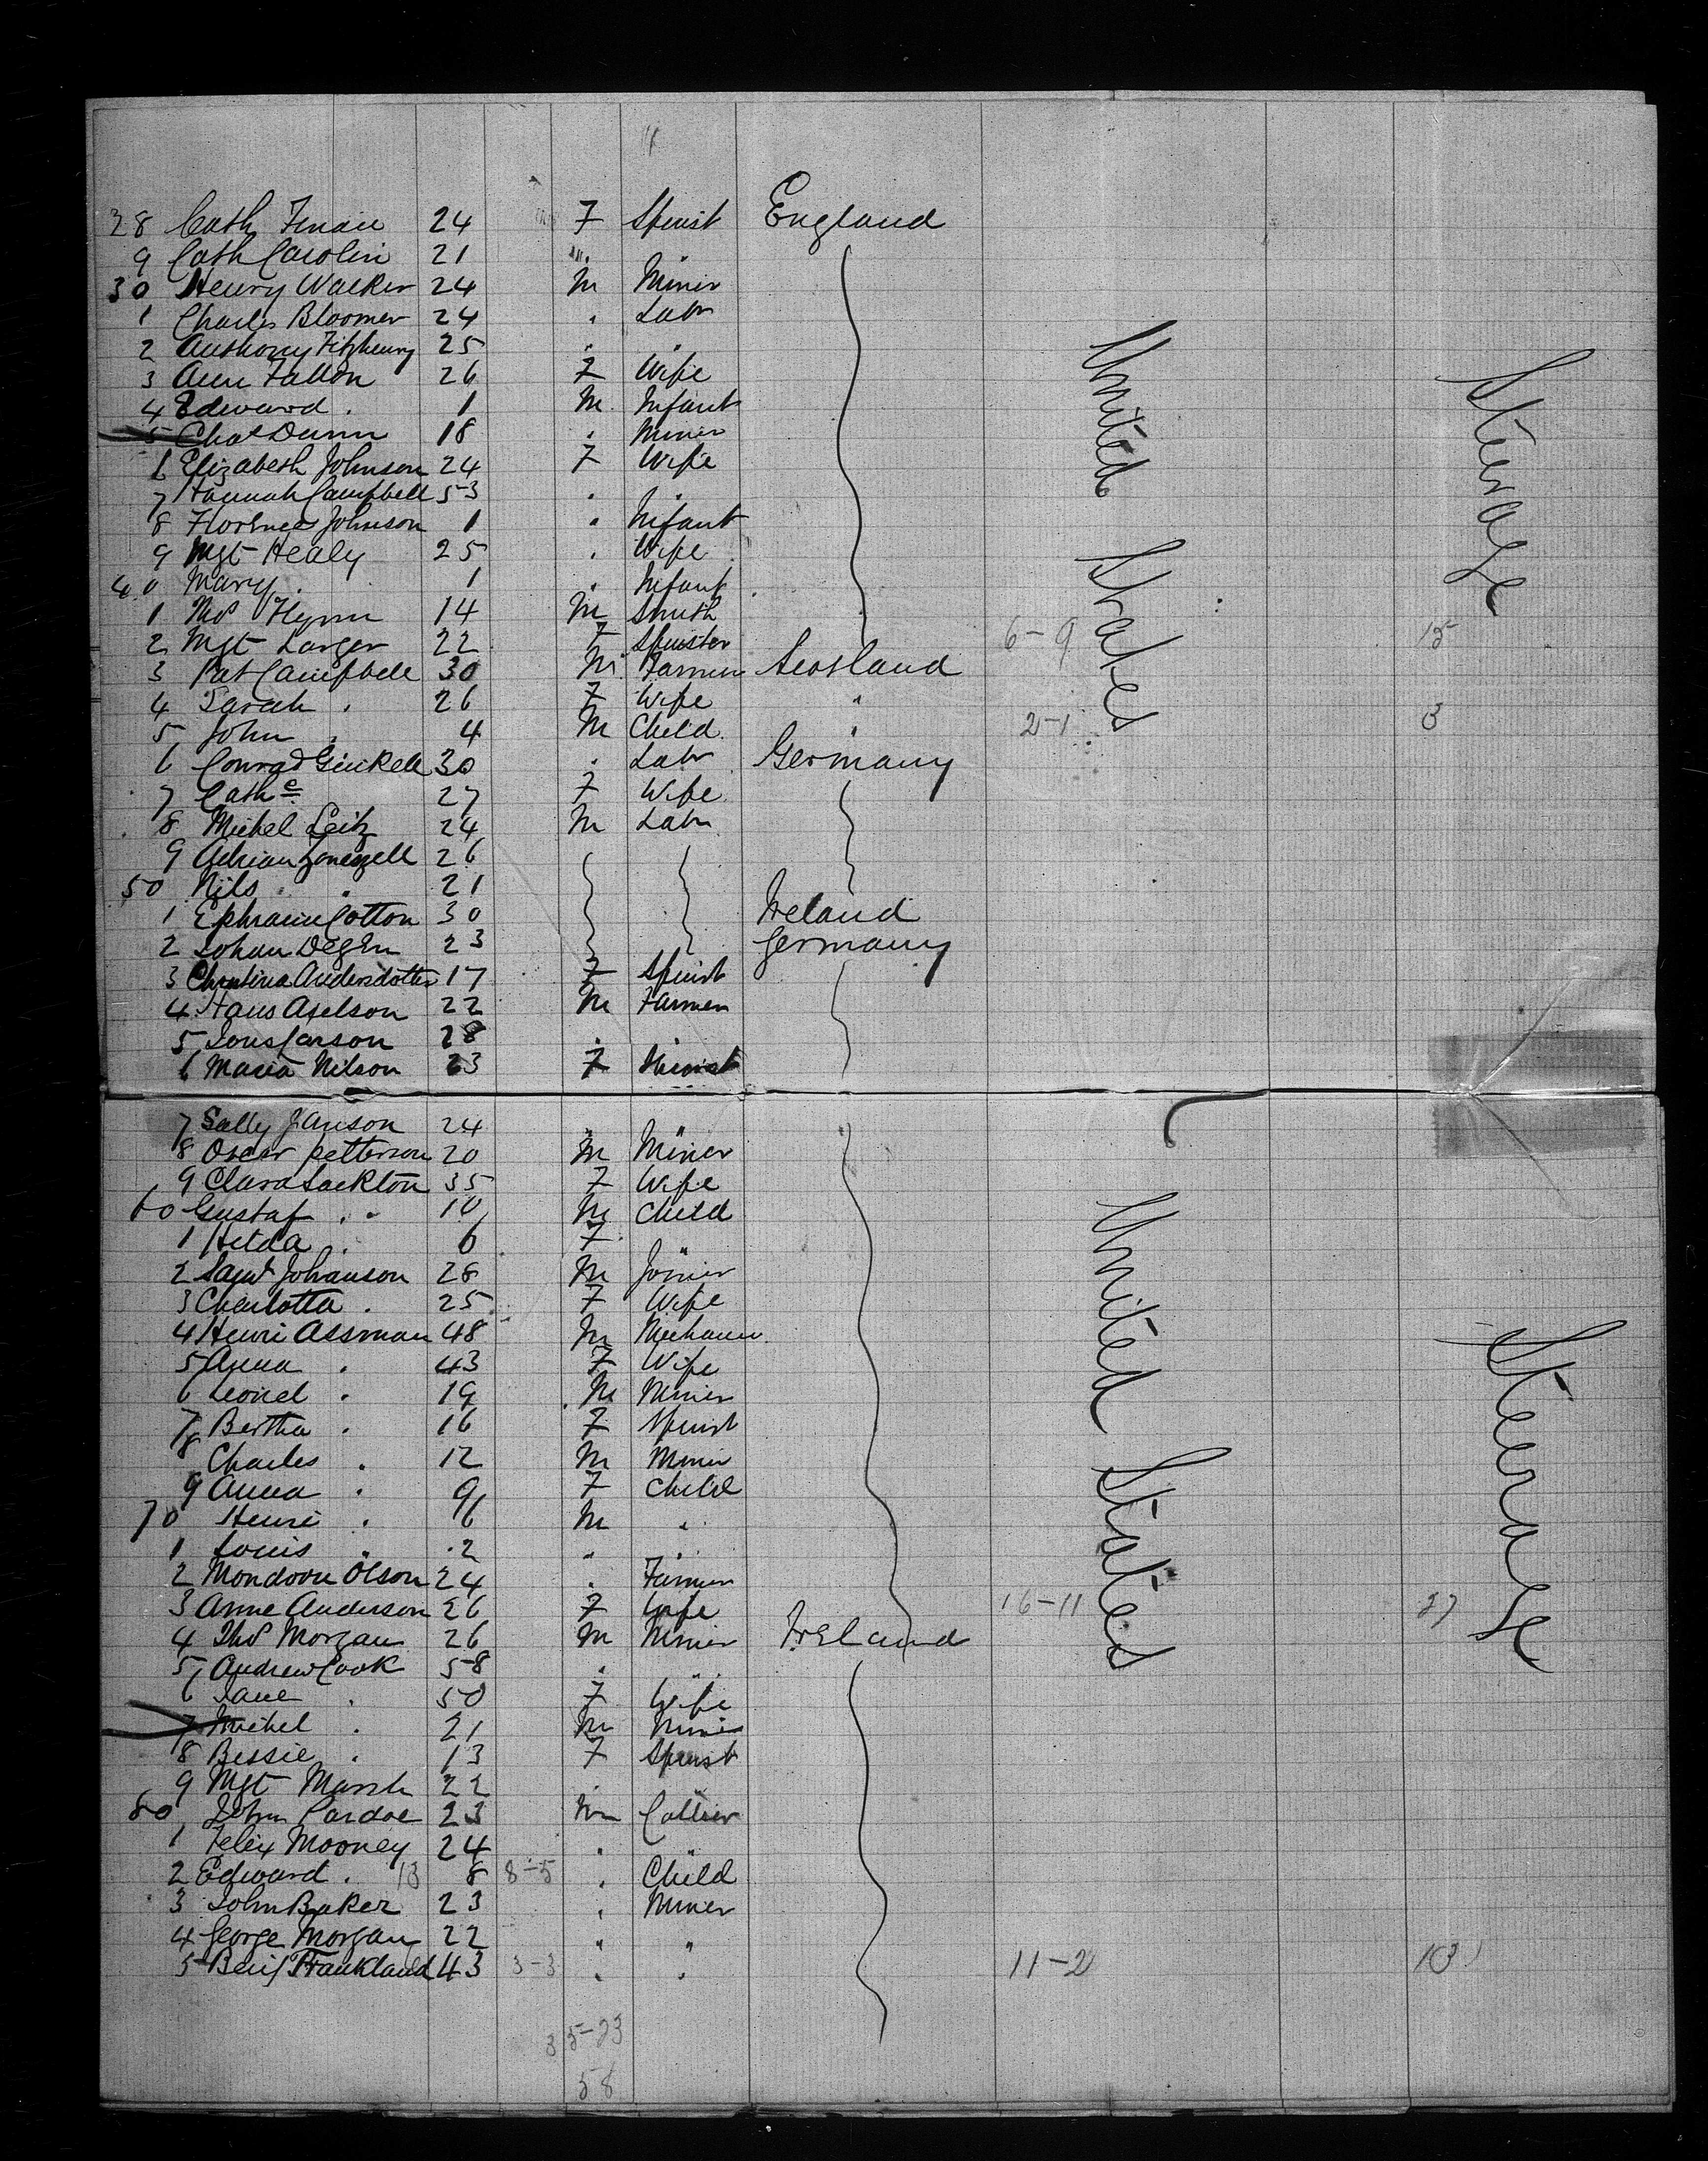 28 Cath 24 F Spinst England
9 Cath Carolin 21 " "
30 Henry Walker 24 M Miner
1 Charles Bloomer 24 " Labr
2 Anthony Fitzhenry 25 " "
3 Ann Fallon 26 F Wife
4 Edward " 1 M Infant
5 Chas Dunn 18 " Miner
6 Elizabeth Johnson 24 F Wife
7 Hannah Campbell 53 " "
8 Florence Johnson 1 " Infant
9 Mgt Healy 25 " Wife
40 Mary " 1 " Infant
1 Flynn 14 M Smith
2 Mgt Larger 22 F Spinster 6-9 15
3 Pat Campbell 30 M Farmer Scotland
4 Sarah " 26 F Wife "
5 John " 4 M Child " 2-1 3
6 Conrad Ginkell 30 " Labr Germany
7 Cathe 27 F Wife
8 Michel Leitz 24 M Labr
9 Adrian 26
50 Nils " " 21
1 Ephraim Cotton 30 Ireland
2 Johan Degen 23 Germany
3 Christina Andersdotter 17 F Spinst
4 Hans Aselson 22 M Farmer
5 Larson 28 " "
6 Maria Nilson 23 F Spinst
7 Sally Janson 24 " "
8 Oscar Petterson 20 M Miner
9 Clara Sackton 35 F Wife
60 Gustaf " " 10 M Child
1 Hilda " 6 F "
2 Johanson 28 M Joiner
3 Charlotta " 25 F Wife
4 Henri Assman 48 M Mechanic
5 Anna " 43 F Wife
6 Leonel " 19 M Miner
7 Bertha " 16 F Spinst
8 Charles " 12 M Miner
9 Anna " 9 F Child
70 Henri " 6 M "
1 Louis " 2 " "
2 Olson 24 " Farmer
3 Anne Anderson 26 F Wife 16-11 27
4 Thos Morgan 26 M Miner Ireland
5 Andrew Cook 58 " "
6 Jane " 50 F Wife
7 Michel " 21 M Miner
8 Bessie " 13 F Spinst
9 Mgt Marsh 22 " "
80 John Pardoe 23 M Collier
1 Felix Mooney 24 " "
2 Edward " 13 8 8-5 " Child
3 John Baker 23 " Miner
4 George Morgan 22 " "
5 Benj Frankland 43 3-3 " " 11-2 13
35-23
58
United States
Steerage
United States
Steerage